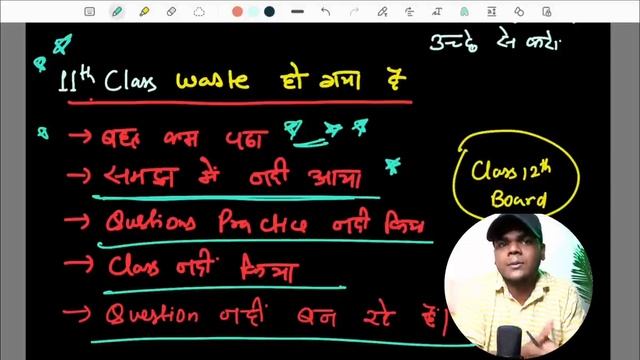 उन्हे रोज करो
11th Class waste हो गया है
→ बहुत कम पढा
→ समझ में नहीं आया
→ Questions Practice नहीं किया
→ Class नहीं किया
→ Question नहीं बन रहे हैं।
Class 12th
Board